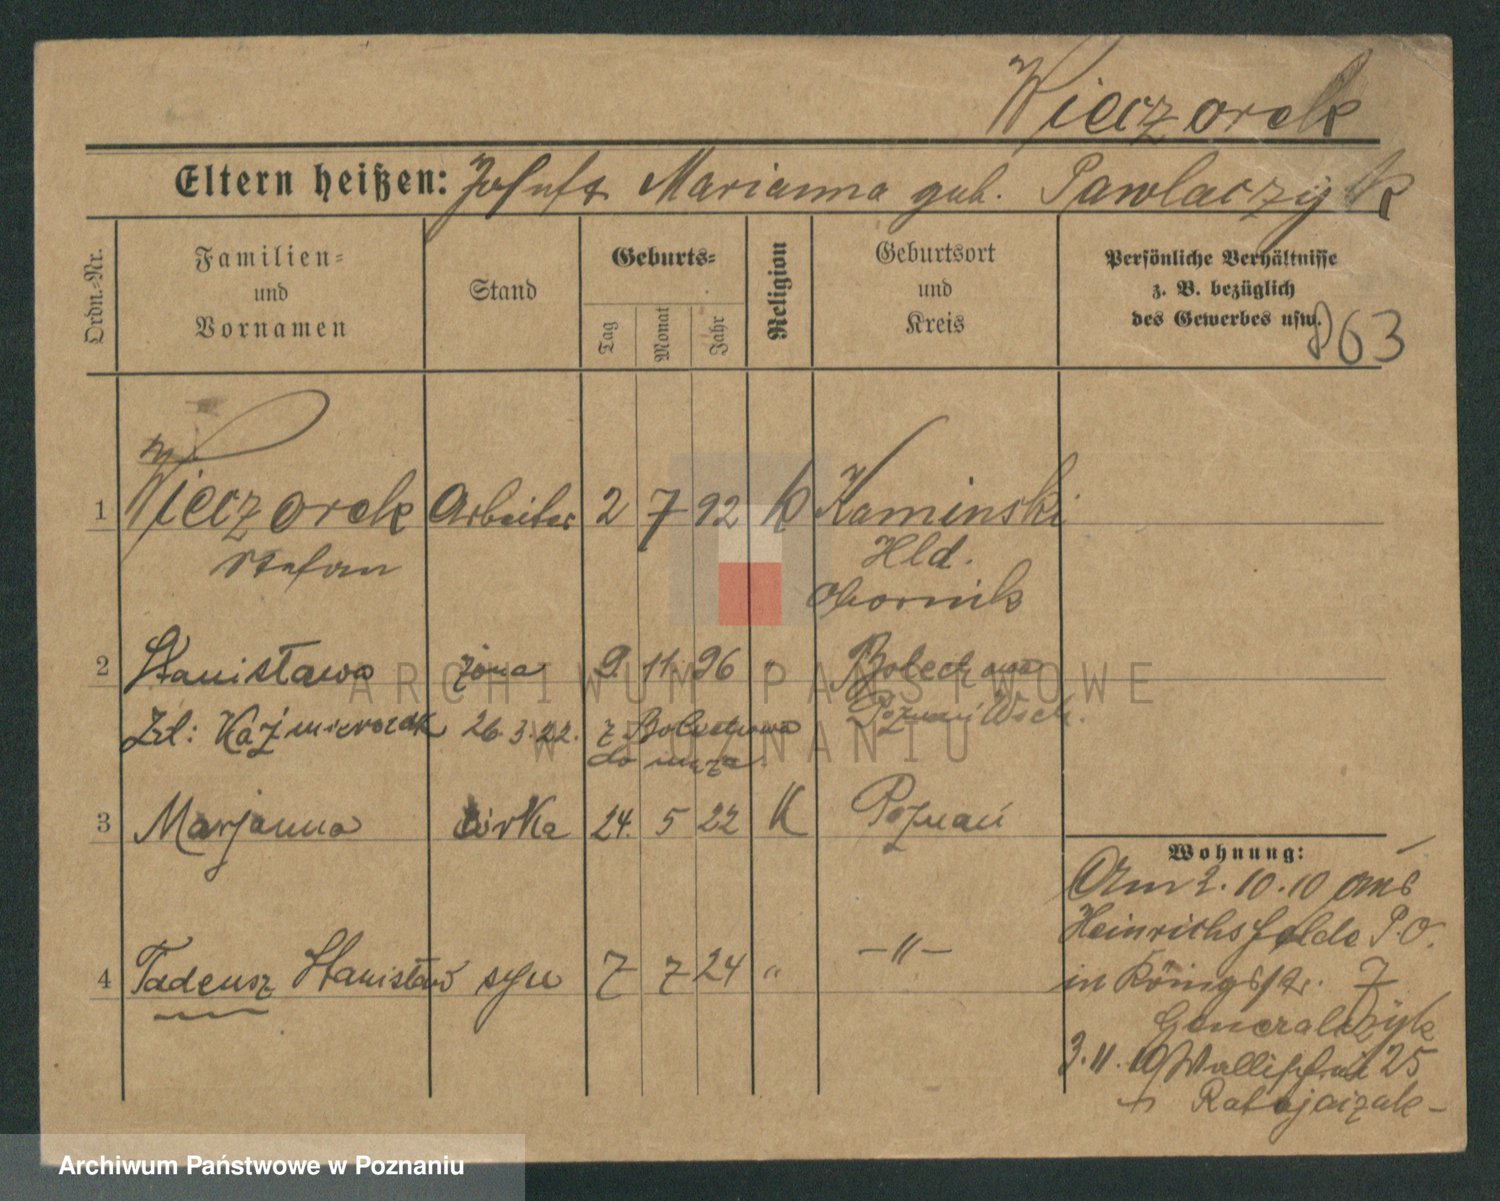 Wieczorek
Eltern heißen: Josef u Marianna geb. Pawlaczyk
Ordn.-Nr.
Familien-
und
Vornamen
Stand
Geburts-
Tag
Monat
Jahr
Religion
Geburtsort
und
Kreis
Persönliche Verhältnisse
z. B. bezüglich
des Gewerbes usw.
63
1 Wieczorek Arbeiter 2 7 92 k Kaminski
Stefan Hld.
Obornik
2 Stanisława żona 9. 11. 96 " Bolechowo
Poznań Wsch.
Kaźmierczak 26.3.22. z Bolechowa
do męża.
3 Marjanna córka 24. 5 22 K Poznań
4 Tadeusz Stanisław syn 7 7 24 " -"-
Wohnung:
Am 2.10.10 aus
Heinrichsfelde P.O.
in Königstr. 7
Generalczyk
3.11.10 Wallischei 25
Ratajczak-
ARCHIWUM PAŃSTWOWE
W POZNANIU
Archiwum Państwowe w Poznaniu